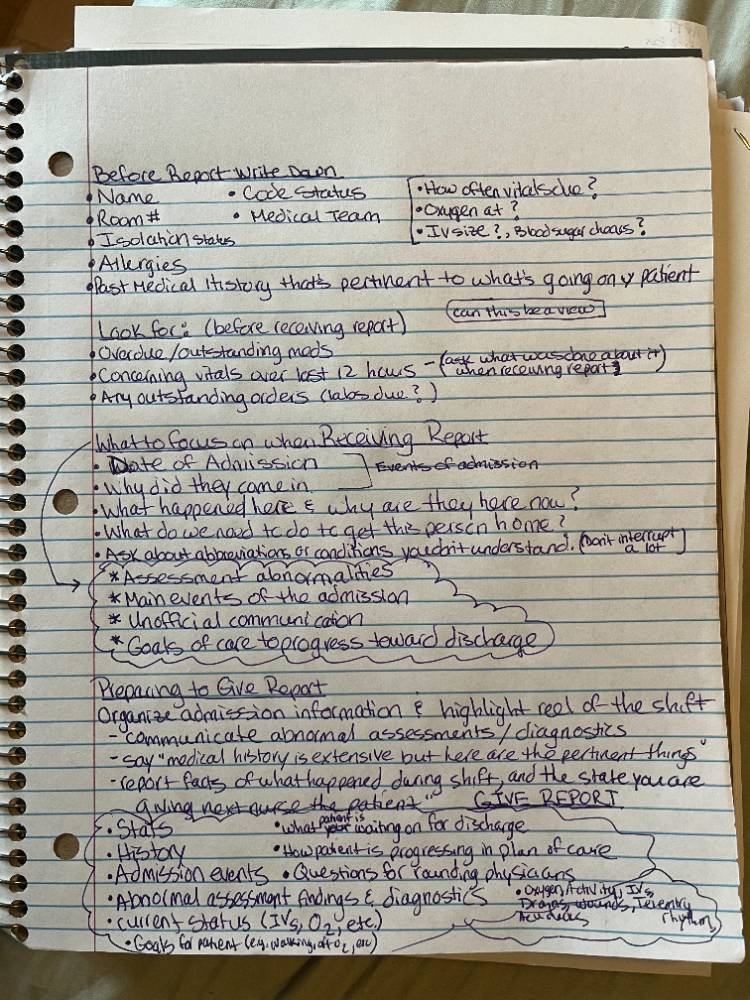 Before Report Write Down
• Name • Code Status
• Room # • Medical Team
• Isolation status
• Allergies
• How often vitals due?
• Oxygen at?
• IV size?, Blood sugar checks?
• Past Medical History that's pertinent to what's going on w patient
can this be a view
Look for: (before receiving report)
• Overdue/outstanding meds
• Concerning vitals over last 12 hours - (ask what was done about it when receiving report)
• Any outstanding orders (labs due?)
What to focus on when Receiving Report
• Date of Admission
• Why did they come in
Events of admission
• What happened here & why are they here now?
• What do we need to do to get this person home?
• Ask about abbreviations or conditions you don't understand. (Don't interrupt a lot)
* Assessment abnormalities
* Main events of the admission
* Unofficial communication
* Goals of care to progress toward discharge
Preparing to Give Report
Organize admission information & highlight reel of the shift
- communicate abnormal assessments/diagnostics
- say "medical history is extensive but here are the pertinent things"
- report facts of what happened during shift, and the state you are
giving next nurse the patient"
GIVE REPORT
• Stats
• History
• Admission events
• Abnormal assessment findings & diagnostics
• current status (IVs, O2, etc.)
• Goals for patient (e.g. walking, off O2, etc)
• What patient is waiting on for discharge
• How patient is progressing in plan of care
• Questions for rounding physicians
• Oxygen, Activity, IVs,
Drains, wounds, Telemetry
rhythm,